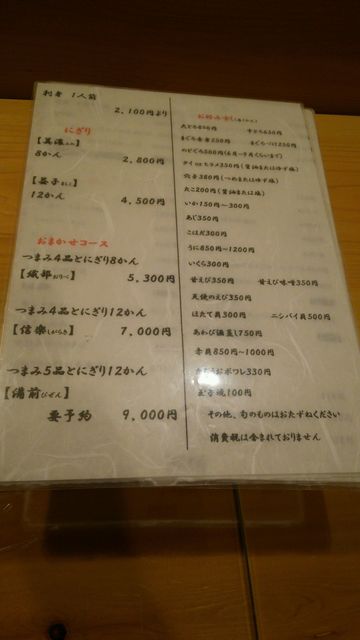 刺身 1人前
2,100円より
にぎり
【美濃みの】
8かん 2,800円
12かん 4,500円
おまかせコース
つまみ4品とにぎり8かん
【織部おりべ】 5,300円
つまみ4品とにぎり12かん
【信楽しがらき】 7,000円
つまみ5品とにぎり12かん
【備前びぜん】
要予約 9,000円
お好み
大とろ850円 中とろ650円
まぐろ赤身250円 まぐろづけ250円
穴子380円(つめまたはゆず塩)
たこ200円(醤油または塩)
いか150円〜300円
あじ350円
こはだ300円
うに850円〜1200円
いくら300円
甘えび350円 甘えび味噌350円
天使のえび350円
ほたて貝300円 ニシバイ貝500円
あわび酒蒸し750円
赤貝850円〜1000円
玉子焼100円
その他、旬のものはおたずねください
消費税は含まれておりません